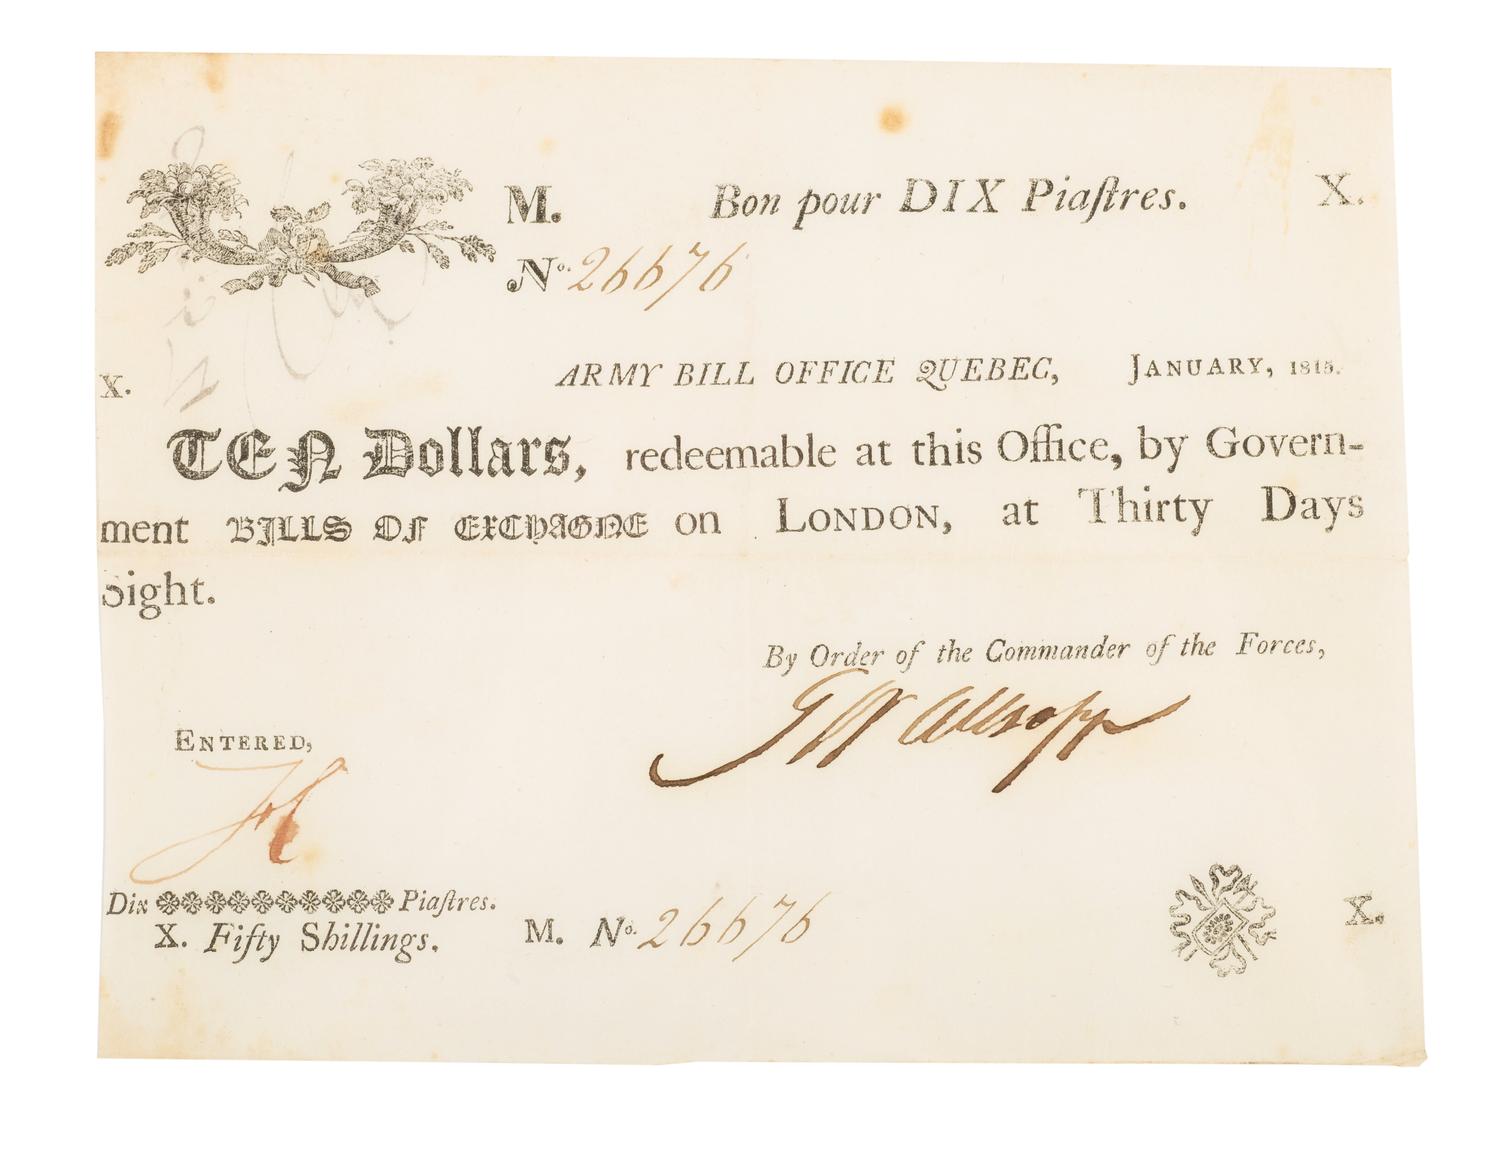 M. Bon pour DIX Piaſtres. X.
No. 26676
X. ARMY BILL OFFICE QUEBEC, JANUARY, 1815.
TEN Dollars, redeemable at this Office, by Govern-
ment BILLS OF EXCHAGNE on LONDON, at Thirty Days
Sight.
By Order of the Commander of the Forces,
GW Allsopp
ENTERED,
Dix Piaſtres.
X. Fifty Shillings. M. No. 26676 X.